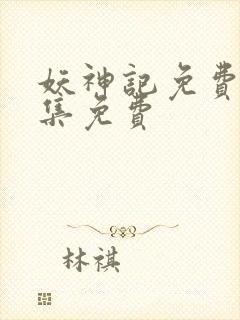 妖神記免費
集免費
林祺